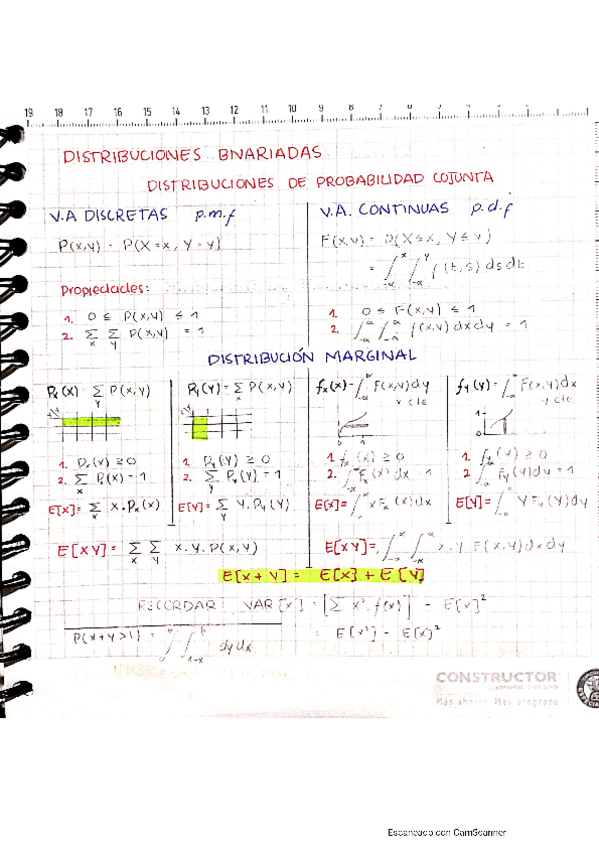 19 18 17 16 15 14 13 12 11 10 9 8 7
DISTRIBUCIONES BNARIADAS
DISTRIBUCIONES DE PROBABILIDAD COJUNTA
V.A DISCRETAS p.m.f
P(x,y) = P(X=x, Y=y)
V.A. CONTINUAS p.d.f
F(x,y) = P(X≤x, Y≤y)
= ∫ˣ₋∞ ∫ʸ₋∞ f(t,s) ds dt
Propiedades:
1. 0 ≤ P(x,y) ≤ 1
2. Σx Σy P(x,y) = 1
1. 0 ≤ F(x,y) ≤ 1
2. ∫ ∫ f(x,y) dx dy = 1
DISTRIBUCIÓN MARGINAL
Px(x) = Σy P(x,y)
1. Px(x) ≥ 0
2. Σx P(x) = 1
E[x] = Σx x.Px(x)
Py(y) = Σx P(x,y)
1. Py(y) ≥ 0
2. Σy Py(y) = 1
E[y] = Σy y.Py(y)
fx(x) = ∫ F(x,y) dy
x cte
1. fx(x) ≥ 0
2. ∫ Fx(x) dx = 1
E[x] = ∫ x Fx(x) dx
fy(y) = ∫ F(x,y) dx
y cte
1. fy(y) ≥ 0
2. ∫ Fy(y) dy = 1
E[y] = ∫ y Fy(y) dy
E[XY] = Σx Σy x.y.P(x,y)
E[XY] = ∫ ∫ x.y.F(x,y) dx dy
E[x+y] = E[x] + E[y]
RECORDAR: VAR[x] = [Σ x².f(x)] - E[x]²
= E[x²] - E[x]²
P(x+y>1) = ∫ ∫ 1-x dy dx
CONSTRUCTOR
Más ahorro. Más progreso
Escaneado con CamScanner